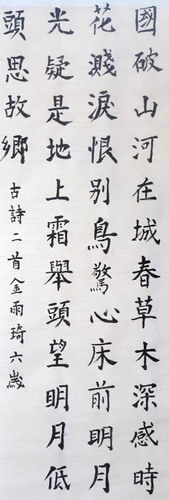 國破山河在城春草木深感時
花濺淚恨别鳥驚心床前明月
光疑是地上霜舉頭望明月低
頭思故鄉 古詩二首金雨琦六歲